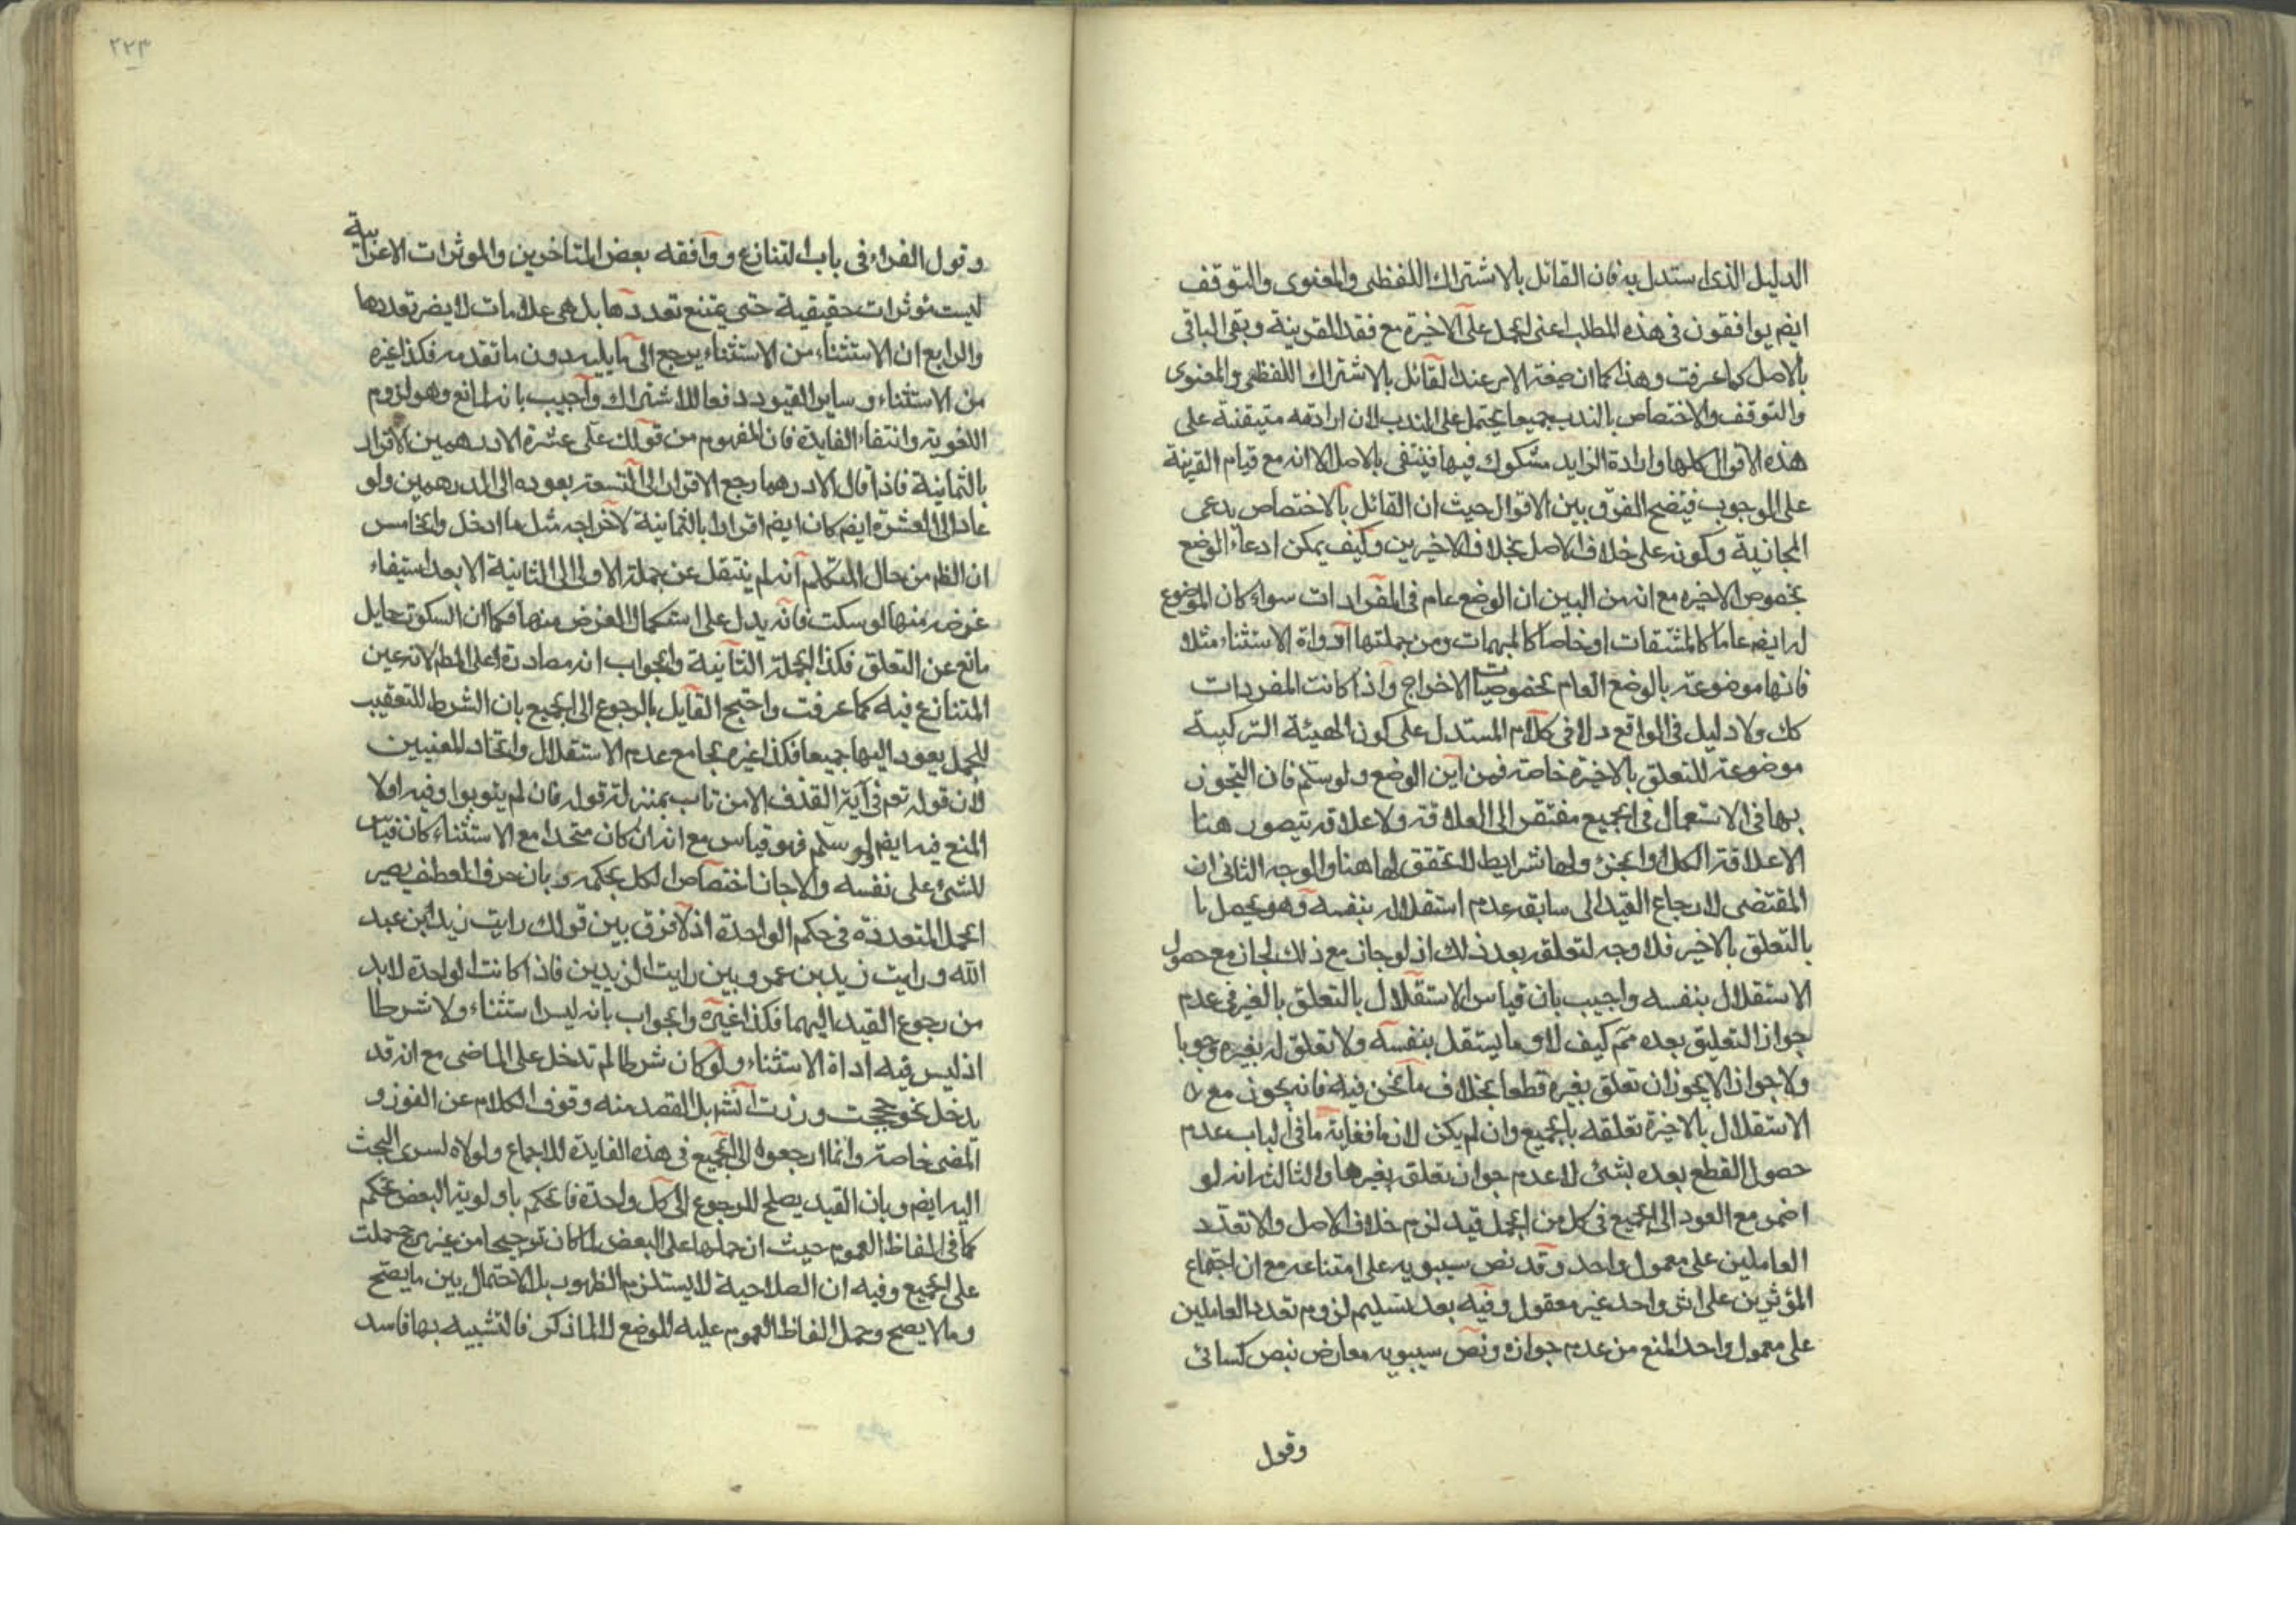 الدليل الذى استدل به فان القائل بالاشتراك اللفظى والمعنوى والتوقف
ايضم يوافقون فى هذه المطلب اعنى الحمل على الاخيرة مع فقد القرينة وبقى الباقى
بالاصل كما عرفت وهذا كما ان صيغة الامر عند القائل بالاشتراك اللفظى والمعنوى
والتوقف والاختصاص بالندب جميعا يحتمل على الندب لان ارادته متيقنة على
هذه الاقوال كلها وارادة الزايد مشكوك فيها فينتفى بالاصل الا انه مع قيام القرينة
على الوجوب فيتضح الفرق بين الاقوال حيث ان القائل بالاختصاص يدعى
المجازية وكونه على خلاف الاصل بخلاف الاخيرين وكيف يمكن ادعاء الوضع
بخصوص الاخيره مع انه من البين ان الوضع عام فى المفردات سواء كان الموضوع
له ايضم عاما كالمشتقات او خاصا كالمبهمات ومن جملتها ادواة الاستثناء مثلا
فانها موضوعة بالوضع العام بخصوصيات الاخراج واذا كانت المفردات
كك ولا دليل فى الواقع ولا فى كلام المستدل على كون الهيئة التركيبية
موضوعة للتعلق بالاخيرة خاصة فمن اين الوضع ولو سلم فان التجوز
بها فى الاستعمال فى الجميع مفتقر الى العلاقة ولا علاقة يتصور هنا
الا علاقة الكل والجزء ولها شرايط لا تحقق لها هنا والوجه الثانى ان
المقتضى لارجاع القيد الى سابقه عدم استقلاله بنفسه وهو يحصل با
بالتعلق بالاخير فلا وجه لتعلقه بعد ذلك اذ لو جاز مع ذلك لجاز مع حصول
الاستقلال بنفسه واجيب بان قياس الاستقلال بالتعلق بالغير فى عدم
جواز التعليق بعده مم كيف لا وما يستقل بنفسه ولا تعلق له بغيره وجوبا
ولا جوازا لا يجوز ان تعلق بغيره قطعا بخلاف ما نحن فيه فانه يجوز مع
الاستقلال بالاخيرة تعلقه بالجميع وان لم يكن لازما فغاية ما فى الباب عدم
حصول القطع بعده بشئ لا عدم جواز تعلق بغيرها والثالث انه لو
اضمر مع العود الى الجميع فى كل من الجمل قيد لزم خلاف الاصل والا تعدد
العاملين على معمول واحد وقد نص سيبويه على امتناعه مع ان اجتماع
المؤثرين على اثر واحد غير معقول وفيه بعد تسليم لزوم تعدد العاملين
على معمول واحد المنع من عدم جوازه ونص سيبويه معارض بنص كسائى
وقول
٢٢٣
وقول الفراء فى باب التنازع ووافقه بعض المتاخرين والموثرات الاعرابية
ليست مؤثرات حقيقية حتى يمتنع تعددها بل هى علامات لا يضر تعددها
والرابع ان الاستثناء من الاستثناء يرجع الى ما يليه دون ما تقدمه فكذا غيره
من الاستثناء وساير القيود دفعا للاشتراك واجيب بانه لمانع وهو لزوم
اللغوية وانتفاء الفايدة فان المفهوم من قولك على عشرة الا درهمين الاقرار
بالثمانية فاذا قال الا درهما رجع الاقرار الى التسعة بعوده الى الدرهمين ولو
عاد الى العشرة ايضم كان ايضم اقرارا بالثمانية لاخراجه مثل ما ادخل والخامس
ان الظم من حال المتكلم انه لم ينتقل عن جملة الاولى الى الثانية الا بعد استيفاء
غرضه منها لو سكت فانه يدل على استكمال الغرض منها فكما ان السكوت حايل
مانع عن التعلق فكذا الجملة الثانية والجواب انه مصادرة على المطم لانه عين
المتنازع فيه كما عرفت واحتج القايل بالرجوع الى الجميع بان الشرط للتعقيب
للجمل يعود اليها جميعا فكذا غيره بجامع عدم الاستقلال واتحاد المعنيين
لان قوله تعم فى آية القذف الا من تاب بمنزلة قوله فان لم يتوبوا وفيه اولا
المنع فيه ايضم ولو سلم فهو قياس مع انه ان كان متحدا مع الاستثناء كان قياس
للشئ على نفسه والا جاز اختصاص الكل بحكمه وبان حرف العطف يصير
الجمل المتعددة فى حكم الواحدة اذ لا فرق بين قولك رايت زيد ابن عبد
الله ورايت زيد بن عمرو وبين رايت الزيدين فاذا كانت الواحدة لابد
من رجوع القيد اليهما فكذا غيره والجواب بانه ليس استثناء ولا شرطا
اذ ليس فيه اداة الاستثناء ولو كان شرطا لم تدخل على الماضى مع انه قد
يدخل نحو حججت وزرت انشر بل القصد منه وقوف الكلام عن الفوز و
المضى خاصة وانما ارجعوه الى الجميع فى هذه الفايدة للاجماع ولولاه لسرى البحث
اليه ايضم وبان القيد يصلح للرجوع الى كل واحدة فالحكم باولوية البعض تحكم
كما فى الفاظ العموم حيث ان حملها على البعض لما كان ترجيحا من غير مرجح حملت
على الجميع وفيه ان الصلاحية لا يستلزم الظهور بل الاحتمال بين ما يصح
وما لا يصح وحمل الفاظ العموم عليه للوضع لا لما ذكر فالتشبيه بها فاسد